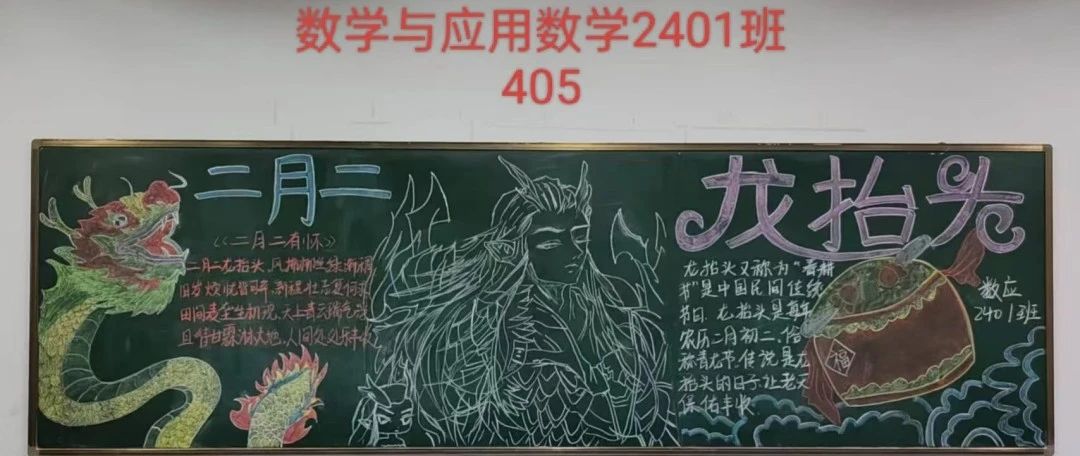 数学与应用数学2401班
405
二月二
《二月二有怀》
二月二龙抬头,风拂柳丝绿渐稠
旧岁
田间春至生机现,天上青云
且借甘霖淋大地,人间
龙抬头
龙抬头又称为“春耕
节”是中国民间传统
节日.龙抬头是每年
农历二月初二,俗
称青龙节.传说是龙
抬头的日子让老天
保佑丰收.
福
数应
2401班